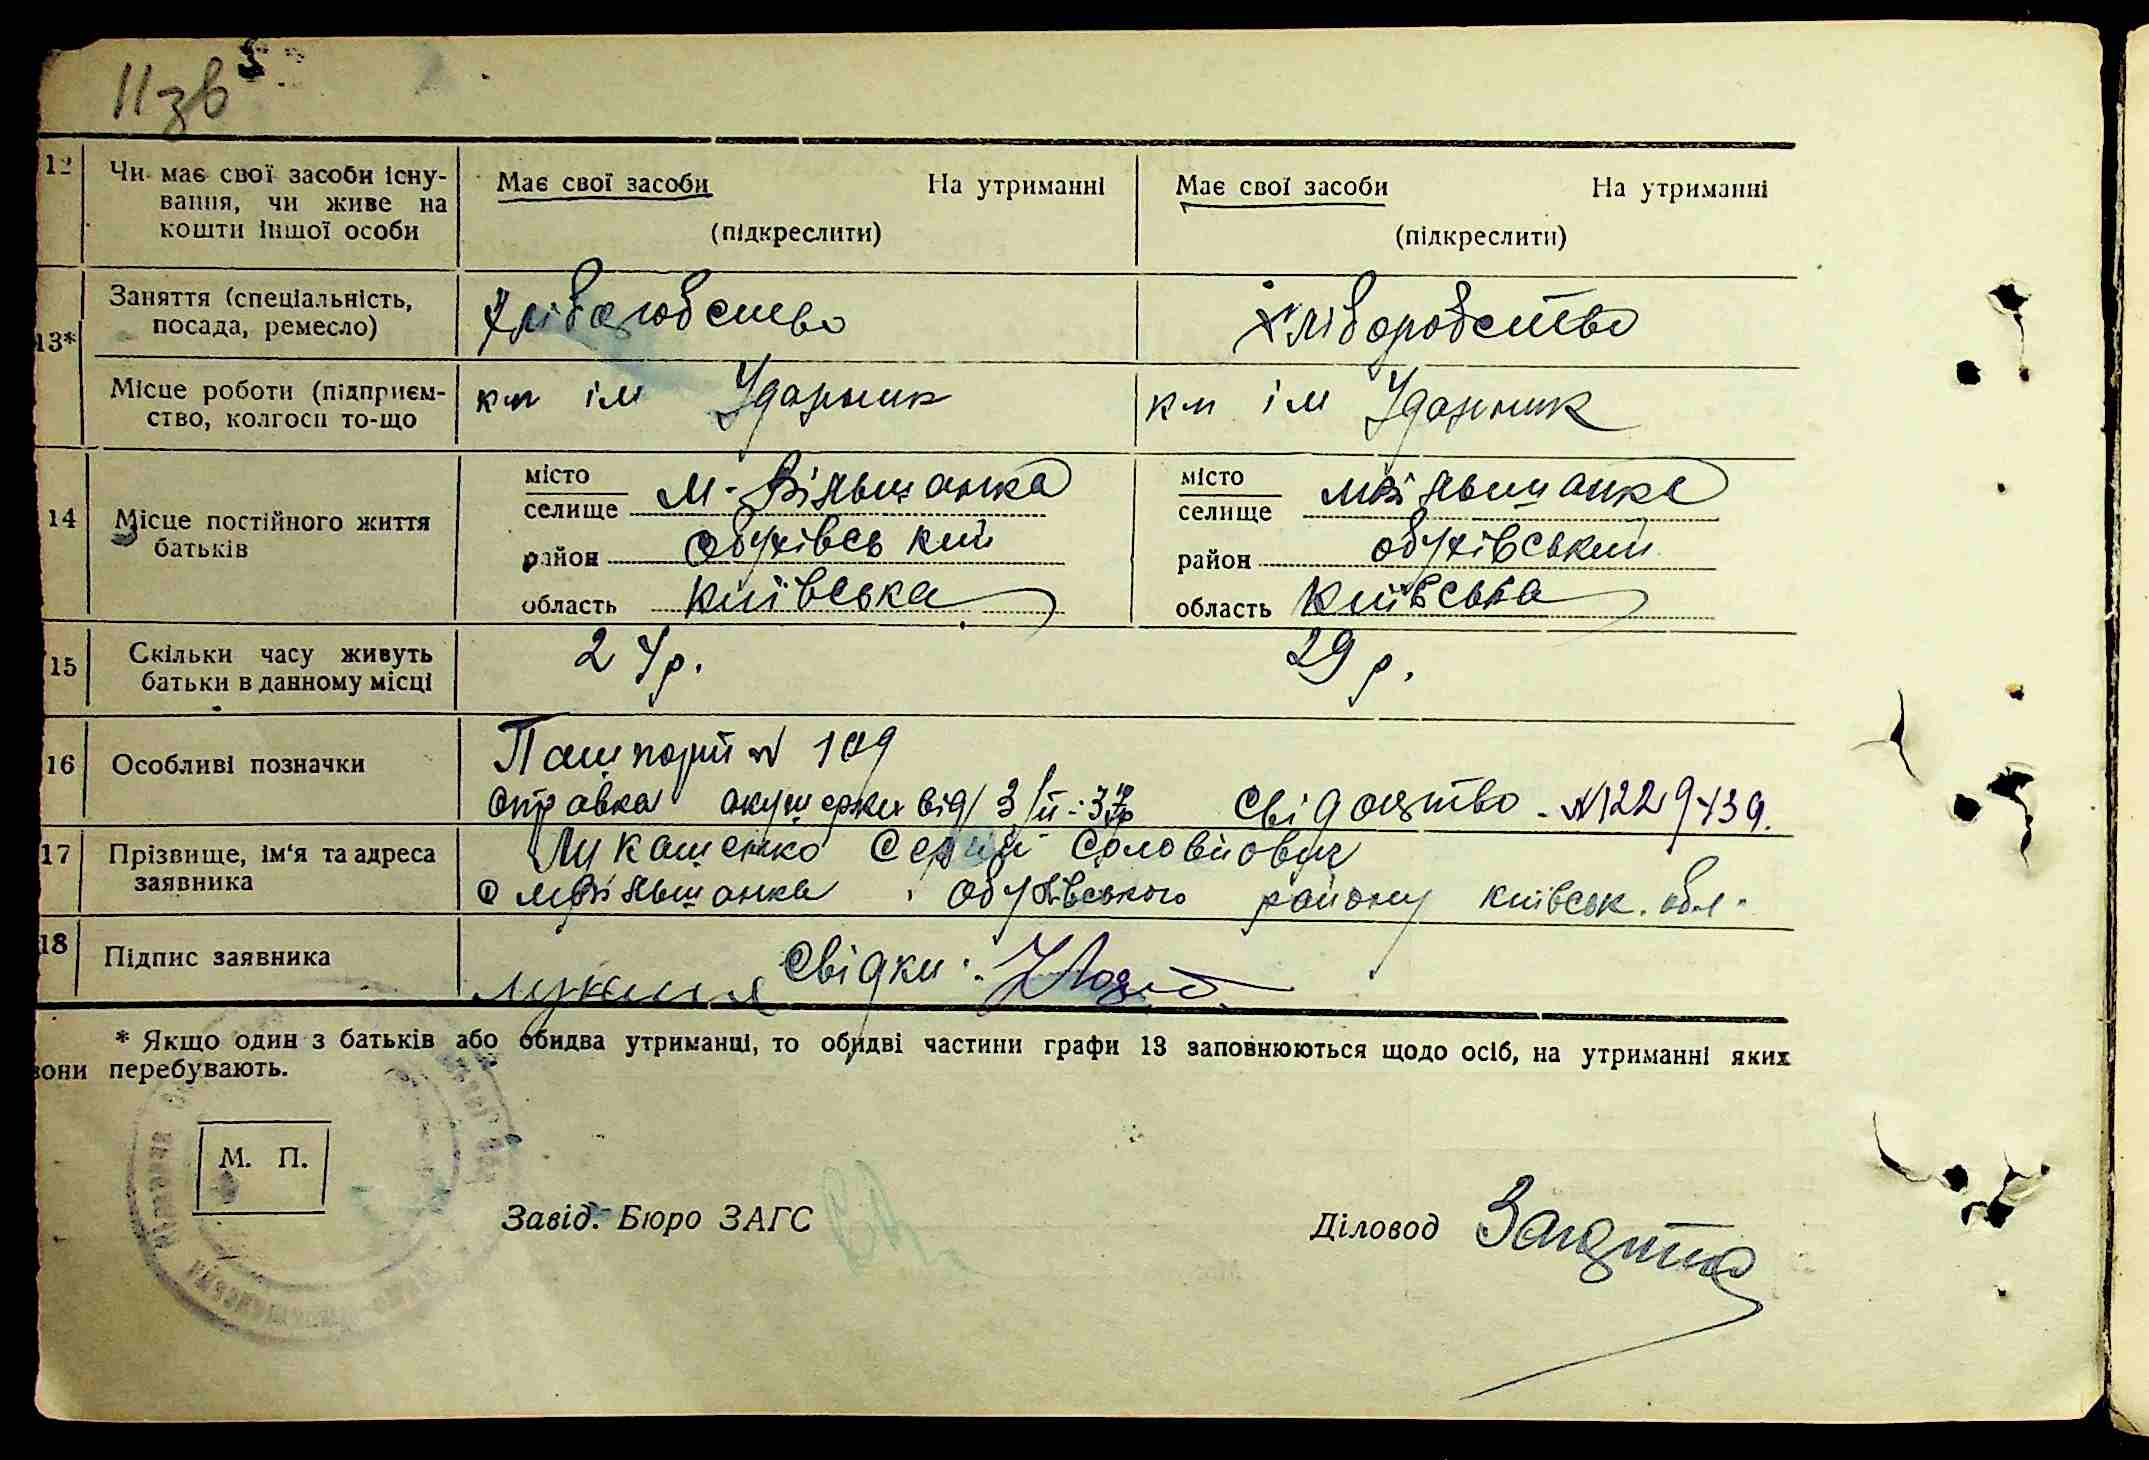 11зв
12 Чи має свої засоби існу-
вання, чи живе на
кошти іншої особи
Має свої засоби На утриманні
(підкреслити)
Має свої засоби На утриманні
(підкреслити)
13*
Заняття (спеціальність,
посада, ремесло)
Хліборобство
Хліборобство
Місце роботи (підприєм-
ство, колгосп то-що
кп ім Ударник
кп ім Ударник
14 Місце постійного життя
батьків
місто
селище М-Вільшанка
район Обухівський
область Київська
місто
селище МВільшанка
район обухівський
область Київська
15 Скільки часу живуть
батьки в данному місці
24р.
29р.
16 Особливі позначки
Пашпорт № 109
справка акушерки від 3/II-37р Свідоцтво - №1229439.
17 Прізвище, ім'я та адреса
заявника
Лукашенко Сергій Соловйович
МВільшанка Обухівського району Київськ. обл.
18 Підпис заявника
Свідки:
* Якщо один з батьків або обидва утриманці, то обидві частини графи 13 заповнюються щодо осіб, на утриманні яких
вони перебувають.
М. П.
Завід. Бюро ЗАГС
Діловод